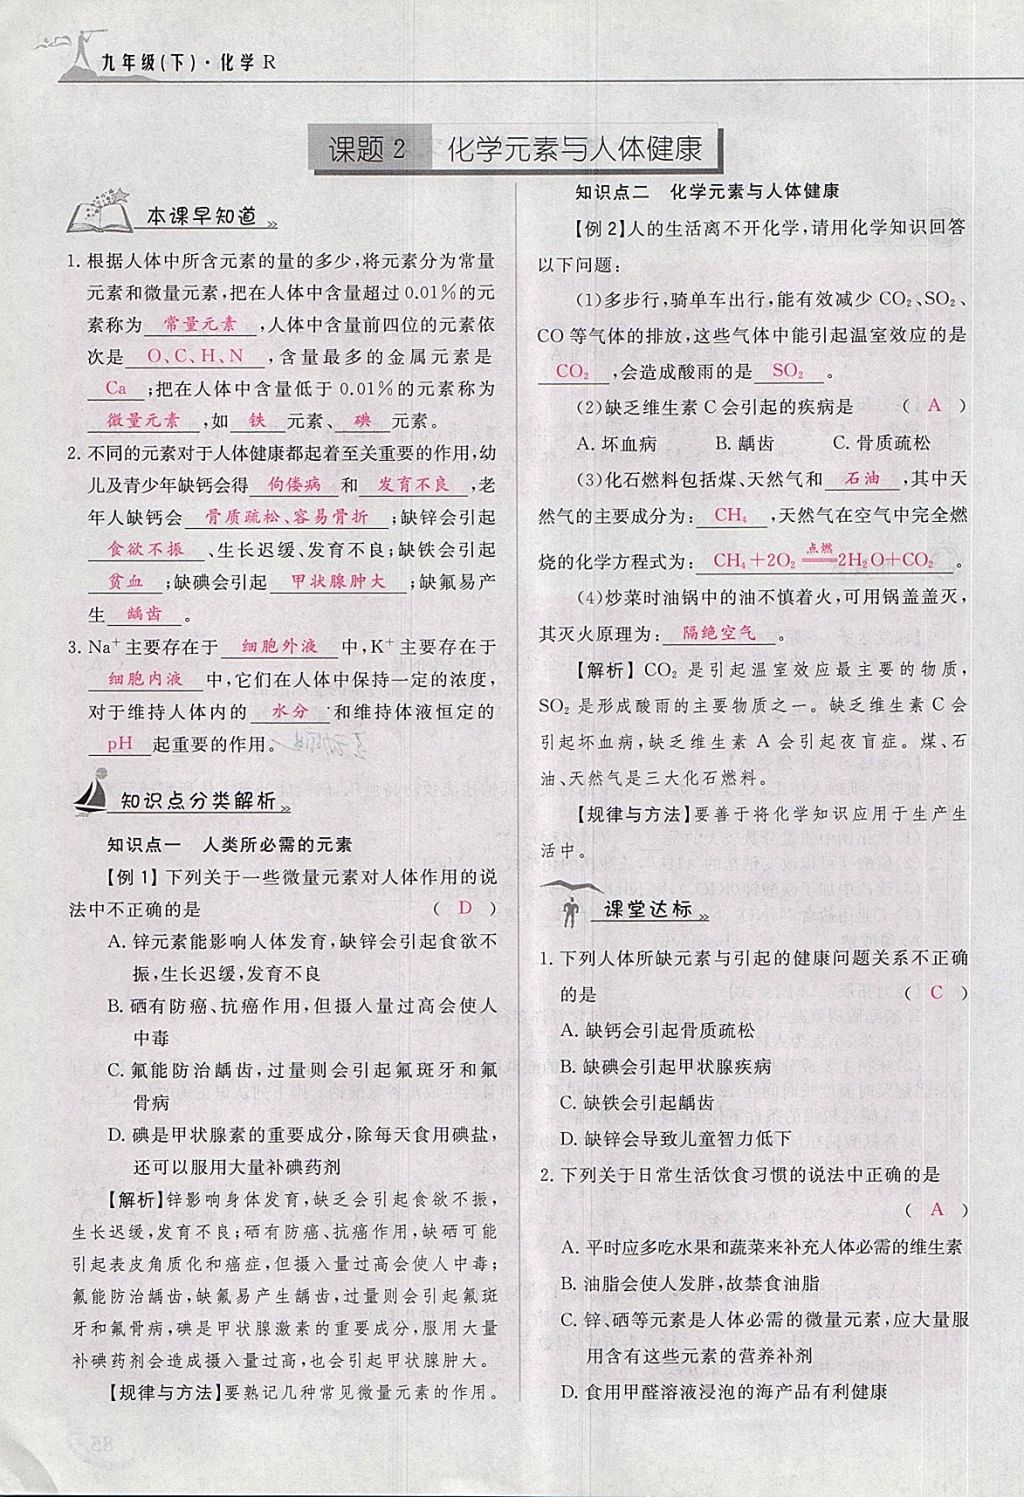 九年级(下)·化学 R
课题 2 化学元素与人体健康
本课早知道
1. 根据人体中所含元素的量的多少,将元素分为常量
元素和微量元素,把在人体中含量超过 0.01%的元
素称为 常量元素 ,人体中含量前四位的元素依
次是 O、C、H、N ,含量最多的金属元素是
Ca ;把在人体中含量低于 0.01%的元素称为
微量元素 ,如 铁 元素、 碘 元素。
2. 不同的元素对于人体健康都起着至关重要的作用,幼
儿及青少年缺钙会得 佝偻病 和 发育不良 ,老
年人缺钙会 骨质疏松、容易骨折 ;缺锌会引起
食欲不振 、生长迟缓、发育不良;缺铁会引起
贫血 ;缺碘会引起 甲状腺肿大 ;缺氟易产
生 龋齿 。
3. Na⁺主要存在于 细胞外液 中,K⁺主要存在于
细胞内液 中,它们在人体中保持一定的浓度,
对于维持人体内的 水分 和维持体液恒定的
pH 起重要的作用。
知识点分类解析
知识点一 人类所必需的元素
【例 1】下列关于一些微量元素对人体作用的说
法中不正确的是 ( D )
A. 锌元素能影响人体发育,缺锌会引起食欲不
振,生长迟缓,发育不良
B. 硒有防癌、抗癌作用,但摄入量过高会使人
中毒
C. 氟能防治龋齿,过量则会引起氟斑牙和氟
骨病
D. 碘是甲状腺素的重要成分,除每天食用碘盐,
还可以服用大量补碘药剂
【解析】锌影响身体发育,缺乏会引起食欲不振,
生长迟缓,发育不良;硒有防癌、抗癌作用,缺硒可能
引起表皮角质化和癌症,但摄入量过高会使人中毒;
氟能防治龋齿,缺氟易产生龋齿,过量则会引起氟斑
牙和氟骨病,碘是甲状腺激素的重要成分,服用大量
补碘药剂会造成摄入量过高,也会引起甲状腺肿大。
【规律与方法】要熟记几种常见微量元素的作用。
知识点二 化学元素与人体健康
【例 2】人的生活离不开化学,请用化学知识回答
以下问题:
(1)多步行,骑单车出行,能有效减少 CO₂、SO₂、
CO 等气体的排放,这些气体中能引起温室效应的是
CO₂ ,会造成酸雨的是 SO₂ 。
(2)缺乏维生素 C 会引起的疾病是 ( A )
A. 坏血病 B. 龋齿 C. 骨质疏松
(3)化石燃料包括煤、天然气和 石油 ,其中天
然气的主要成分为: CH₄ ,天然气在空气中完全燃
点燃
烧的化学方程式为: CH₄+2O₂══2H₂O+CO₂ 。
(4)炒菜时油锅中的油不慎着火,可用锅盖盖灭,
其灭火原理为: 隔绝空气 。
【解析】CO₂ 是引起温室效应最主要的物质,
SO₂ 是形成酸雨的主要物质之一。缺乏维生素 C 会
引起坏血病,缺乏维生素 A 会引起夜盲症。煤、石
油、天然气是三大化石燃料。
【规律与方法】要善于将化学知识应用于生产生
活中。
课堂达标
1. 下列人体所缺元素与引起的健康问题关系不正确
的是 ( C )
A. 缺钙会引起骨质疏松
B. 缺碘会引起甲状腺疾病
C. 缺铁会引起龋齿
D. 缺锌会导致儿童智力低下
2. 下列关于日常生活饮食习惯的说法中正确的是
( A )
A. 平时应多吃水果和蔬菜来补充人体必需的维生素
B. 油脂会使人发胖,故禁食油脂
C. 锌、硒等元素是人体必需的微量元素,应大量服
用含有这些元素的营养补剂
D. 食用甲醛溶液浸泡的海产品有利健康